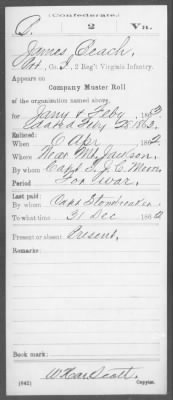 (Confederate.)
2 Va.
James Beach,
Co. 2 Reg't Virginia Infantry.
Appears on
Company Muster Roll
of the organization named above,
for Jany & Feby 186
dated Feby 28 1863.
Enlisted:
When Apr 186
Where Near Mt. Jackson.
By whom Capt
Period For War.
Last paid:
By whom Capt
To what time 31 Dec 186
Present or absent Present.
Remarks:
Book mark:
(642) Copyist.